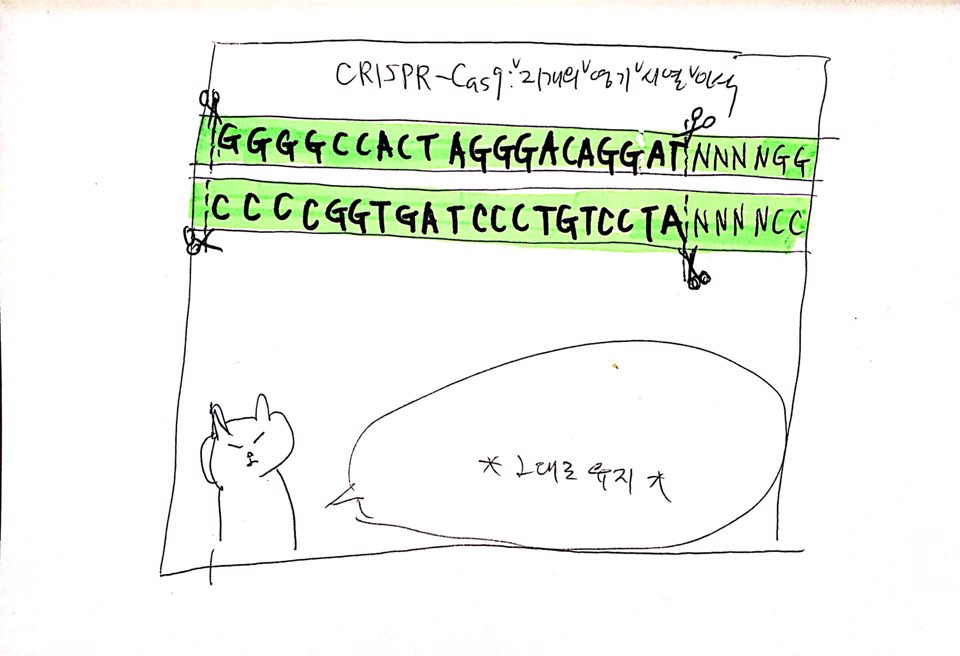 CRISPR-Cas9: 21개의 염기 서열 인식
GGGGCCACTAGGGACAGGATNNNNGG
CCCCGGTGATCCCTGTCCTANNNNCC
* 그대로 유지 *